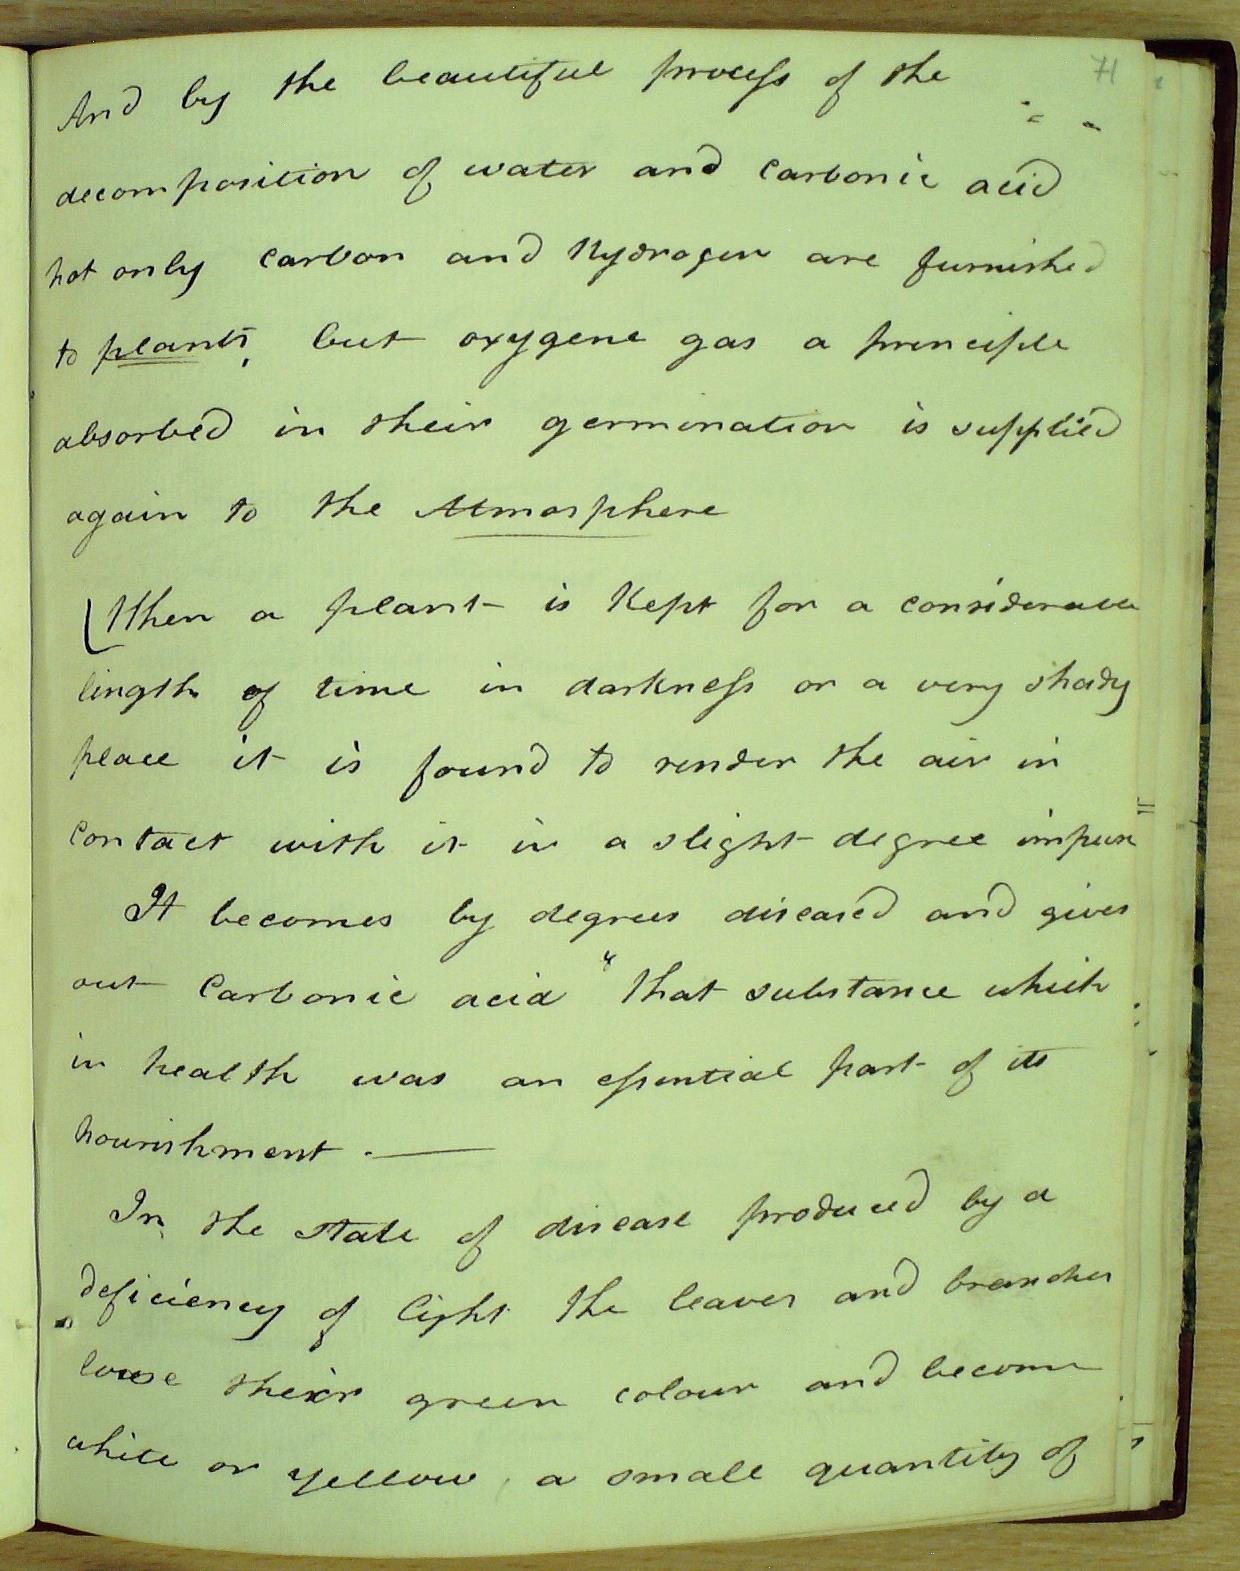 71
And by the beautiful process of the
decomposition of water and carbonic acid
not only carbon and Hydrogen are furnished
to plants, but oxygene gas a principle
absorbed in their germination is supplied
again to the Atmosphere
When a plant is Kept for a considerable
length of time in darkness or a very shady
place it is found to render the air in
contact with it in a slight degree impure
It becomes by degrees diseased and gives
out Carbonic acid " that substance which
in health was an essential part of its
nourishment. —
In the state of disease produced by a
deficiency of light the leaves and branches
loose their green colour and become
white or yellow, a small quantity of